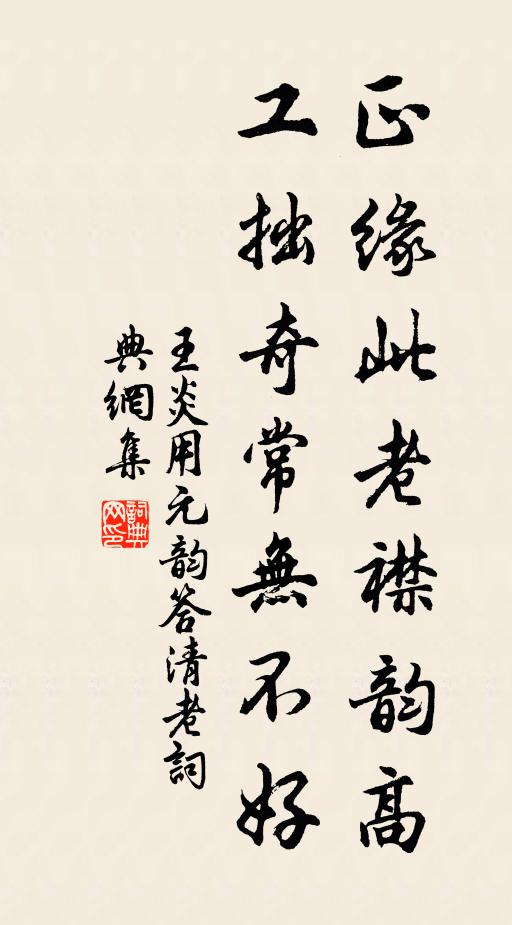 正緣此老襟韵高
工拙奇常無不好
王炎用元韵答清老詞
典網集
詞典網印